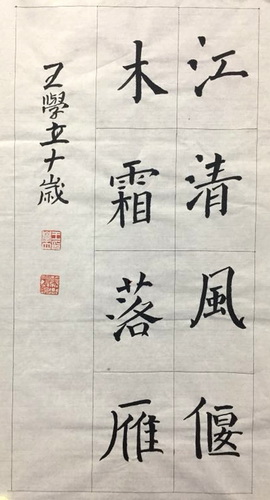 江清風偃
木霜落雁
王學立十歲